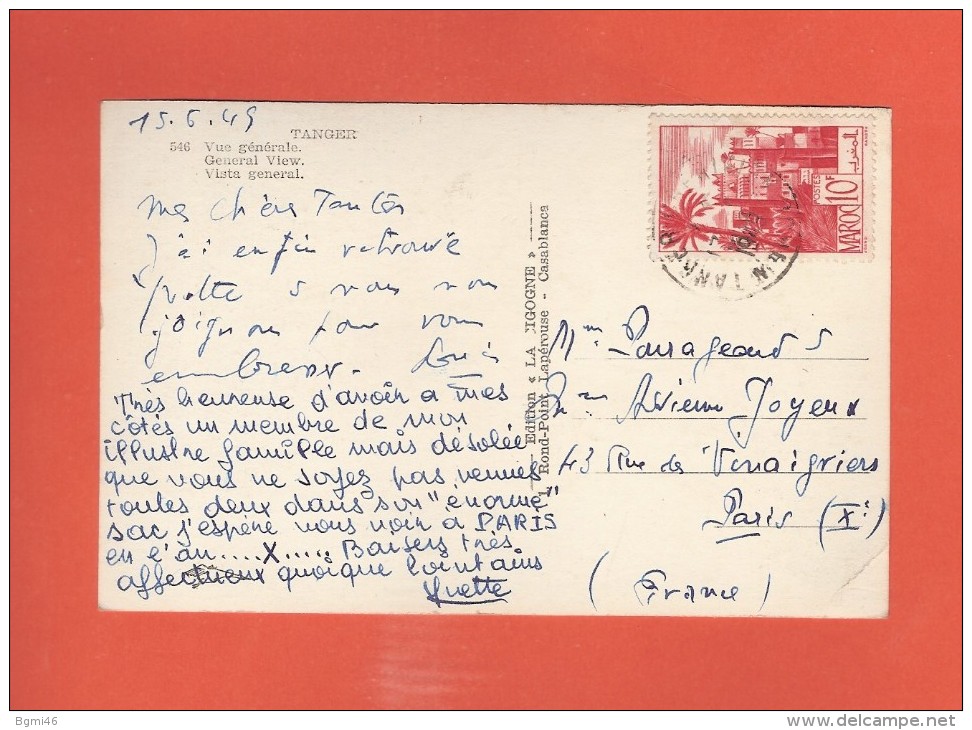 15.6.49
TANGER
546 Vue générale.
General View.
Vista general.
mes chères Tantes
J'ai enfin retrouvé
Yvette & nous nous
joignons pour vous
embrasser. Louis
Très heureuse d'avoir a mes
côtés un membre de mon
illustre famille mais désolée
que vous ne soyez pas venues
toutes deux dans son "enorme"
sac j'espère vous voir a PARIS
en l'an ....X..... Baisers très
affectueux quoique lointains
Yvette
Edition « LA CIGOGNE »
1 Rond-Point Lapérouse - Casablanca
MAROC 10F
POSTES
المغرب
TANGER
Joyeux
43 Rue des Vinaigriers
Paris (Xe)
(France)
Bgmi46
delcampe.net